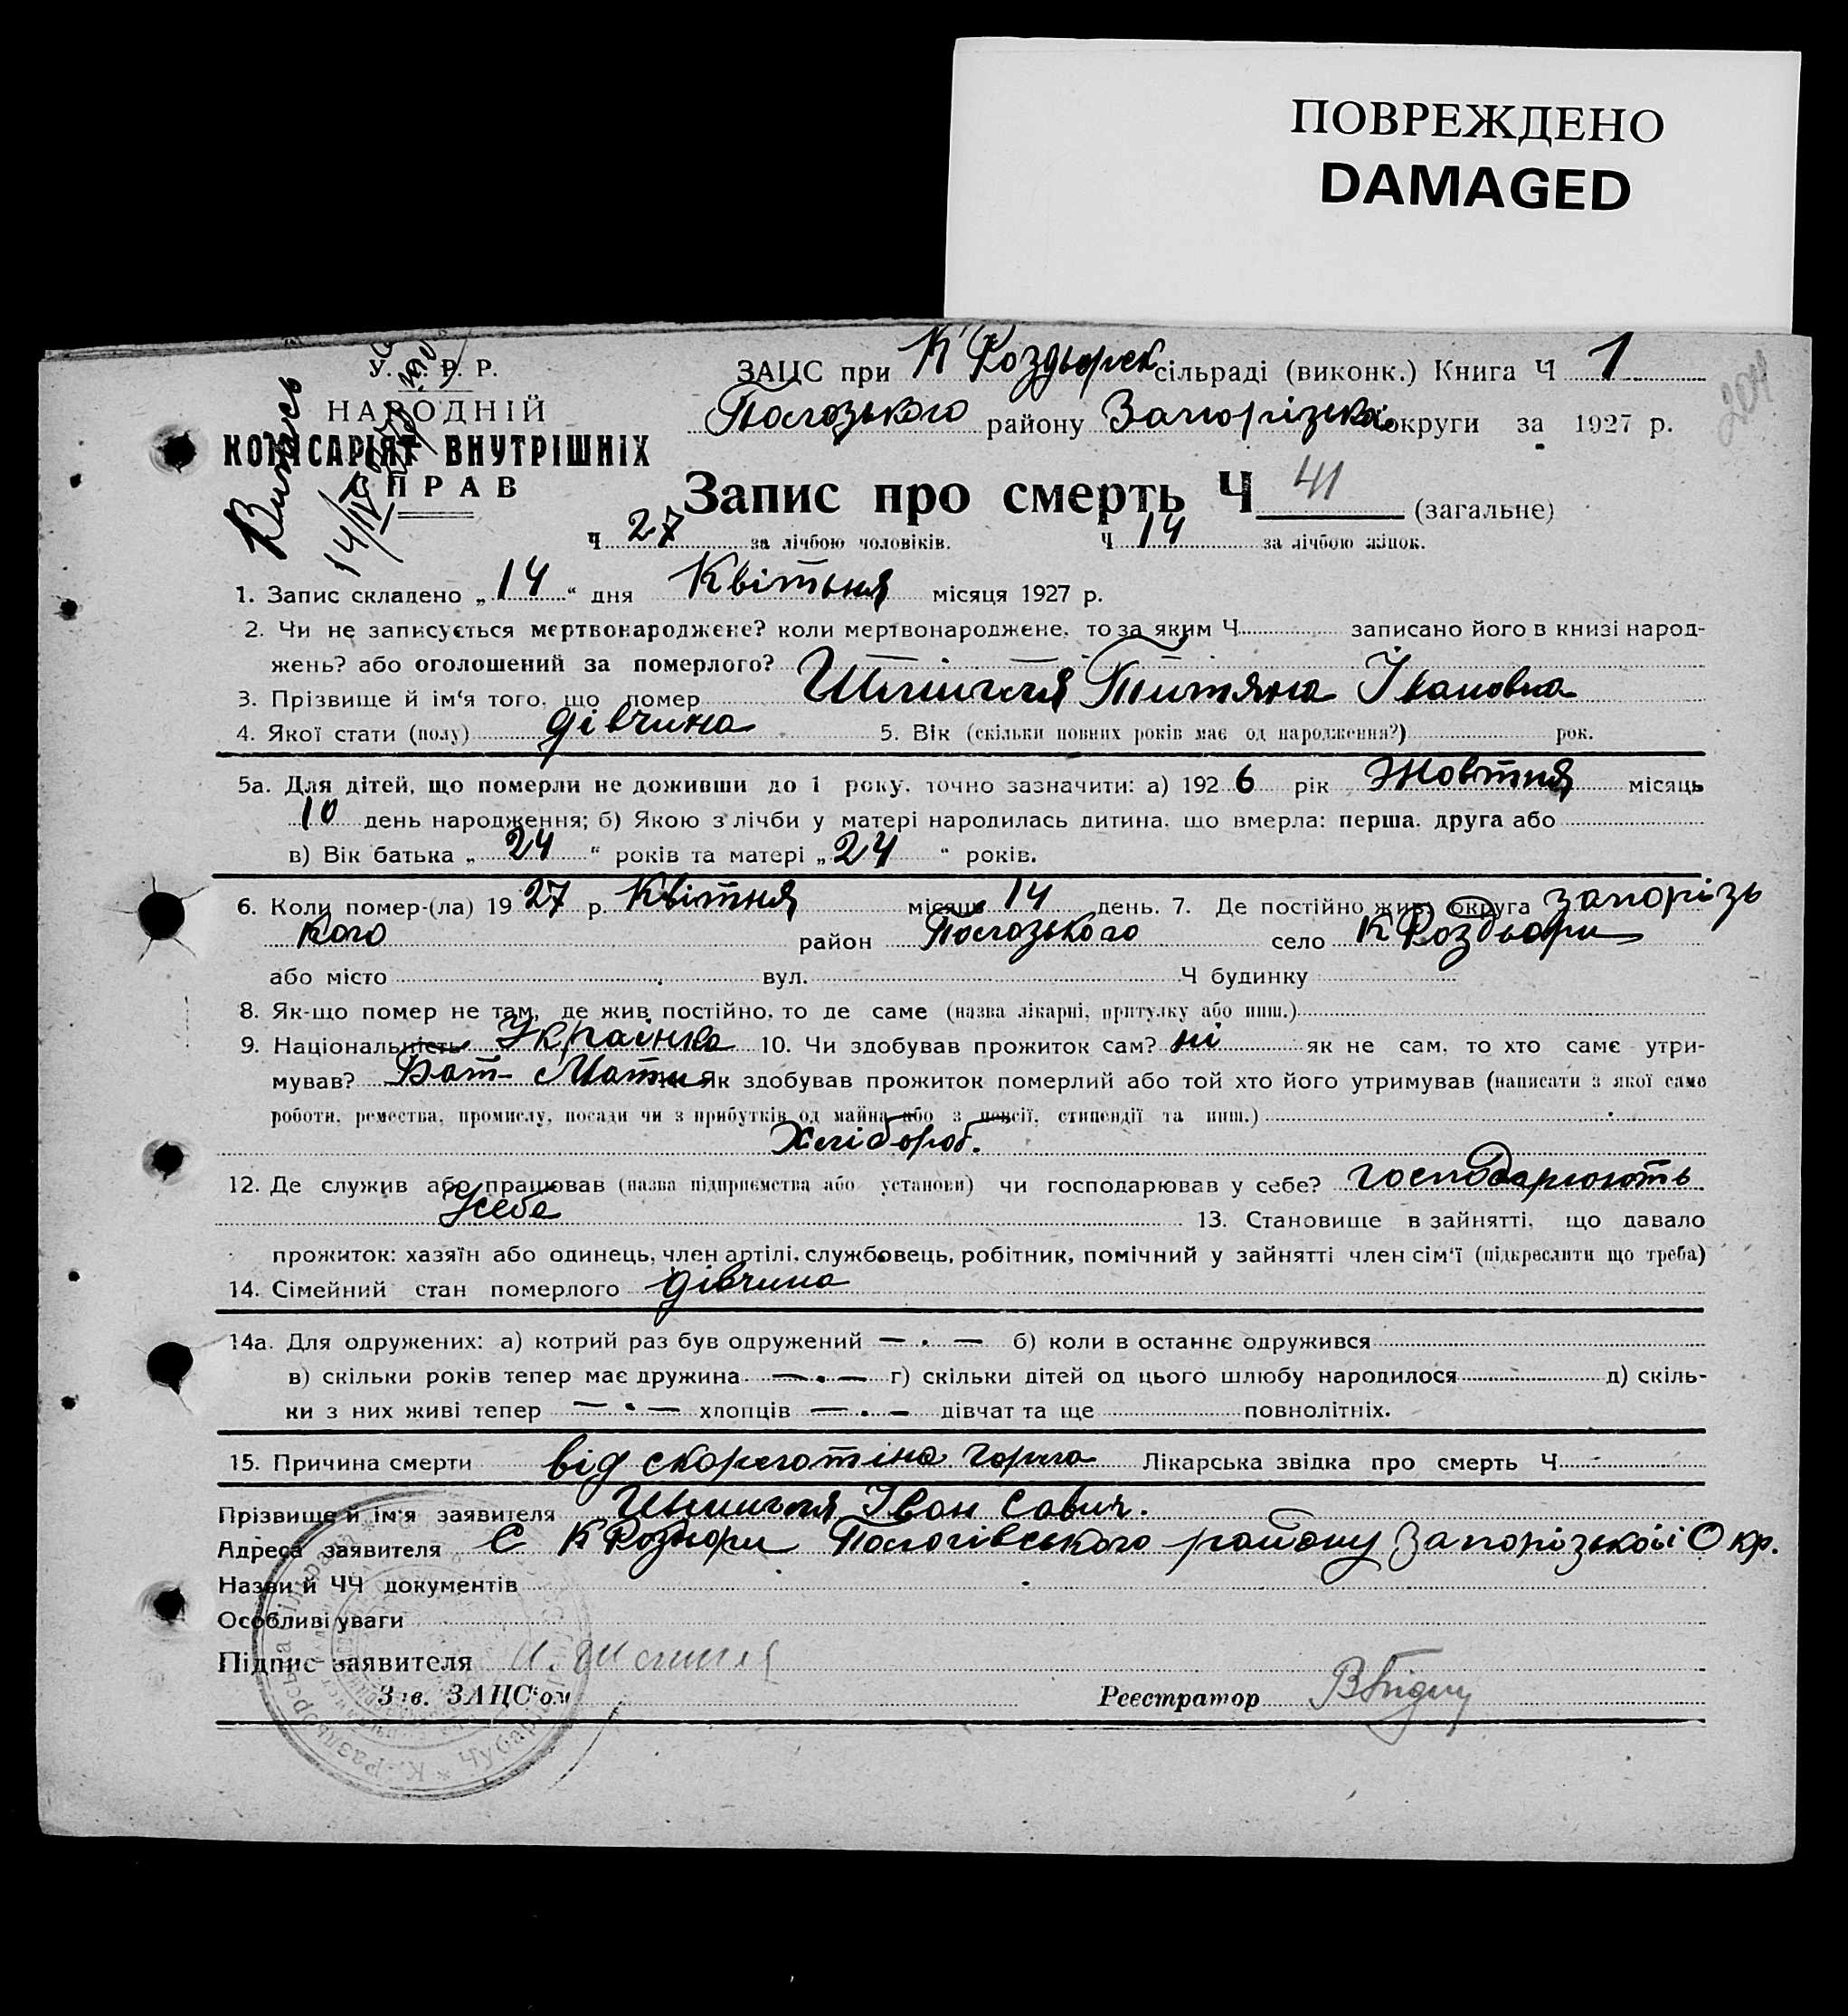 ПОВРЕЖДЕНО
DAMAGED
У. С. Р. Р.
НАРОДНІЙ
КОМІСАРІЯТ ВНУТРІШНІХ
СПРАВ
Випись
14/IV
ЗАЦС при К Роздорск сільраді (виконк.) Книга Ч 1
204
Пологзького району Запорізької округи за 1927 р.
Запис про смерть Ч 41 (загальне)
Ч 27 за лічбою чоловіків. Ч 14 за лічбою жінок.
1. Запис складено „14“ дня Квітьня місяця 1927 р.
2. Чи не записується мертвонароджене? коли мертвонароджене, то за яким Ч записано його в книзі народ-
жень? або оголошений за померлого?
3. Прізвище й ім'я того, що помер Титяна Івановна
4. Якої стати (полу) дівчина 5. Вік (скільки повних років має од народження?) рок.
5а. Для дітей, що померли не доживши до 1 року, точно зазначити: а) 1926 рік Жовтня місяць
10 день народження; б) Якою з лічби у матері народилась дитина, що вмерла: перша, друга або
в) Вік батька „24“ років та матері „24“ років.
6. Коли помер-(ла) 1927 р. Квітня місяць 14 день. 7. Де постійно жив: округа запорізь
кого район Пологзького село К Роздори
або місто вул. Ч будинку
8. Як-що помер не там, де жив постійно, то де саме (назва лікарні, притулку або инш.)
9. Національність Українка 10. Чи здобував прожиток сам? ні як не сам, то хто саме утри-
мував? Бат- Мати Як здобував прожиток померлий або той хто його утримував (написати з якої само
роботи, ремества, промислу, посади чи з прибутків од майна або з пенсії, стипендії та инш.)
Хлібороб.
12. Де служив або працював (назва підприємства або установи) чи господарював у себе? господарюють
Усебе 13. Становище в зайнятті, що давало
прожиток: хазяїн або одинець, член артілі, службовець, робітник, помічний у зайнятті член сім'ї (підкреслити що треба)
14. Сімейний стан померлого дівчина
14а. Для одружених: а) котрий раз був одружений — . — б) коли в останнє одружився
в) скільки років тепер має дружина — . — г) скільки дітей од цього шлюбу народилося д) скіль-
ки з них живі тепер — . — хлопців — . — дівчат та ще повнолітніх.
15. Причина смерти від скорлотіна горла Лікарська звідка про смерть Ч
Прізвище й ім'я заявителя Іван Савич.
Адреса заявителя С К Роздори Пологівського району Запорізькоїі Окр.
Назви й ЧЧ документів
Особливі уваги
Підпис заявителя
Зав. ЗАЦС'ом Реєстратор